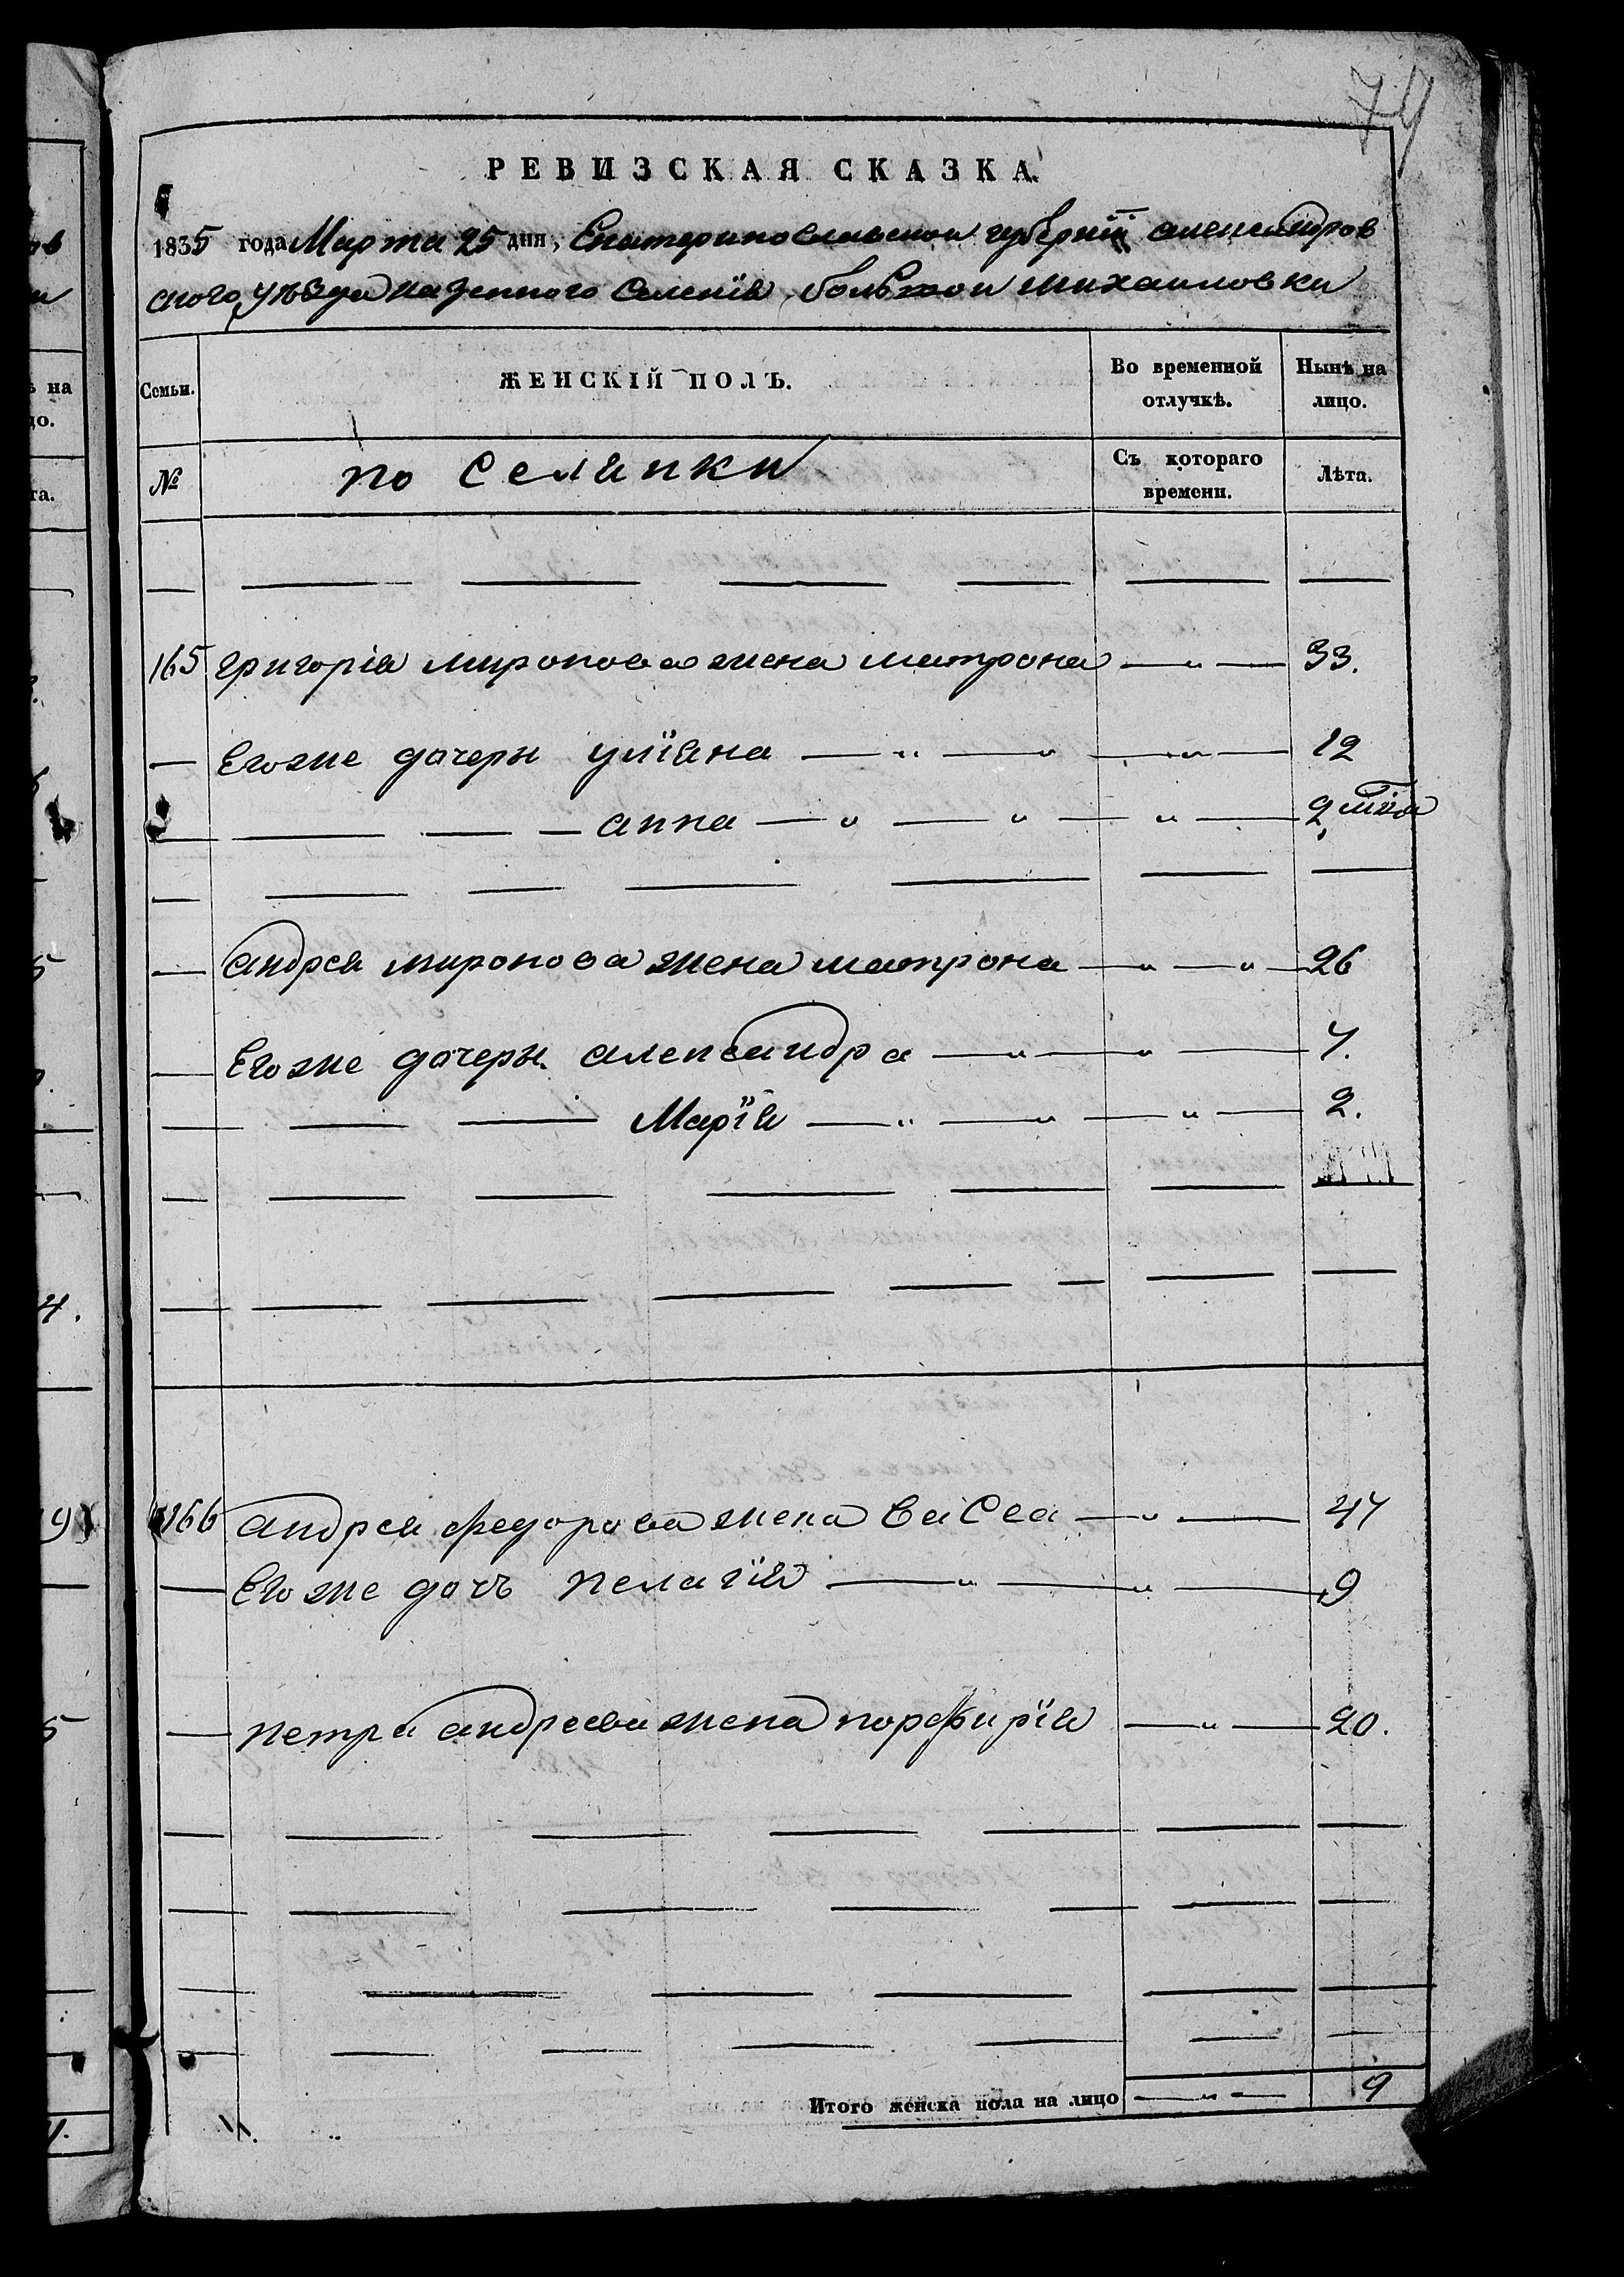 79
РЕВИЗСКАЯ СКАЗКА.
1835 года Марта 25 дня, Екатеринославской губернїи александров
ского уѣзда казенного Селенїя, большой михаиловки
Семьи. ЖЕНСКІЙ ПОЛЪ. Во временной отлучкѣ. Нынѣ на лицо.
№ по Селянки Съ котораго времени. Лѣта.
165 григорія миронова жена матрона — " — 33.
— Егоже дочеры улїяна — " — " — " — 12
— — — — анна — " — " — " — 2
— андрея миронова жена матрона — " — " — 26
— Егоже дочеры александра — " — " — 7.
— — — Марїя — " — " — " — 2.
166 андрея федорова жена Васса — " — 47
— Егоже дочь пелагїя — " — " — 9
— петра андреева жена порфирїя — " — 20.
Итого женска пола на лицо — " — 9